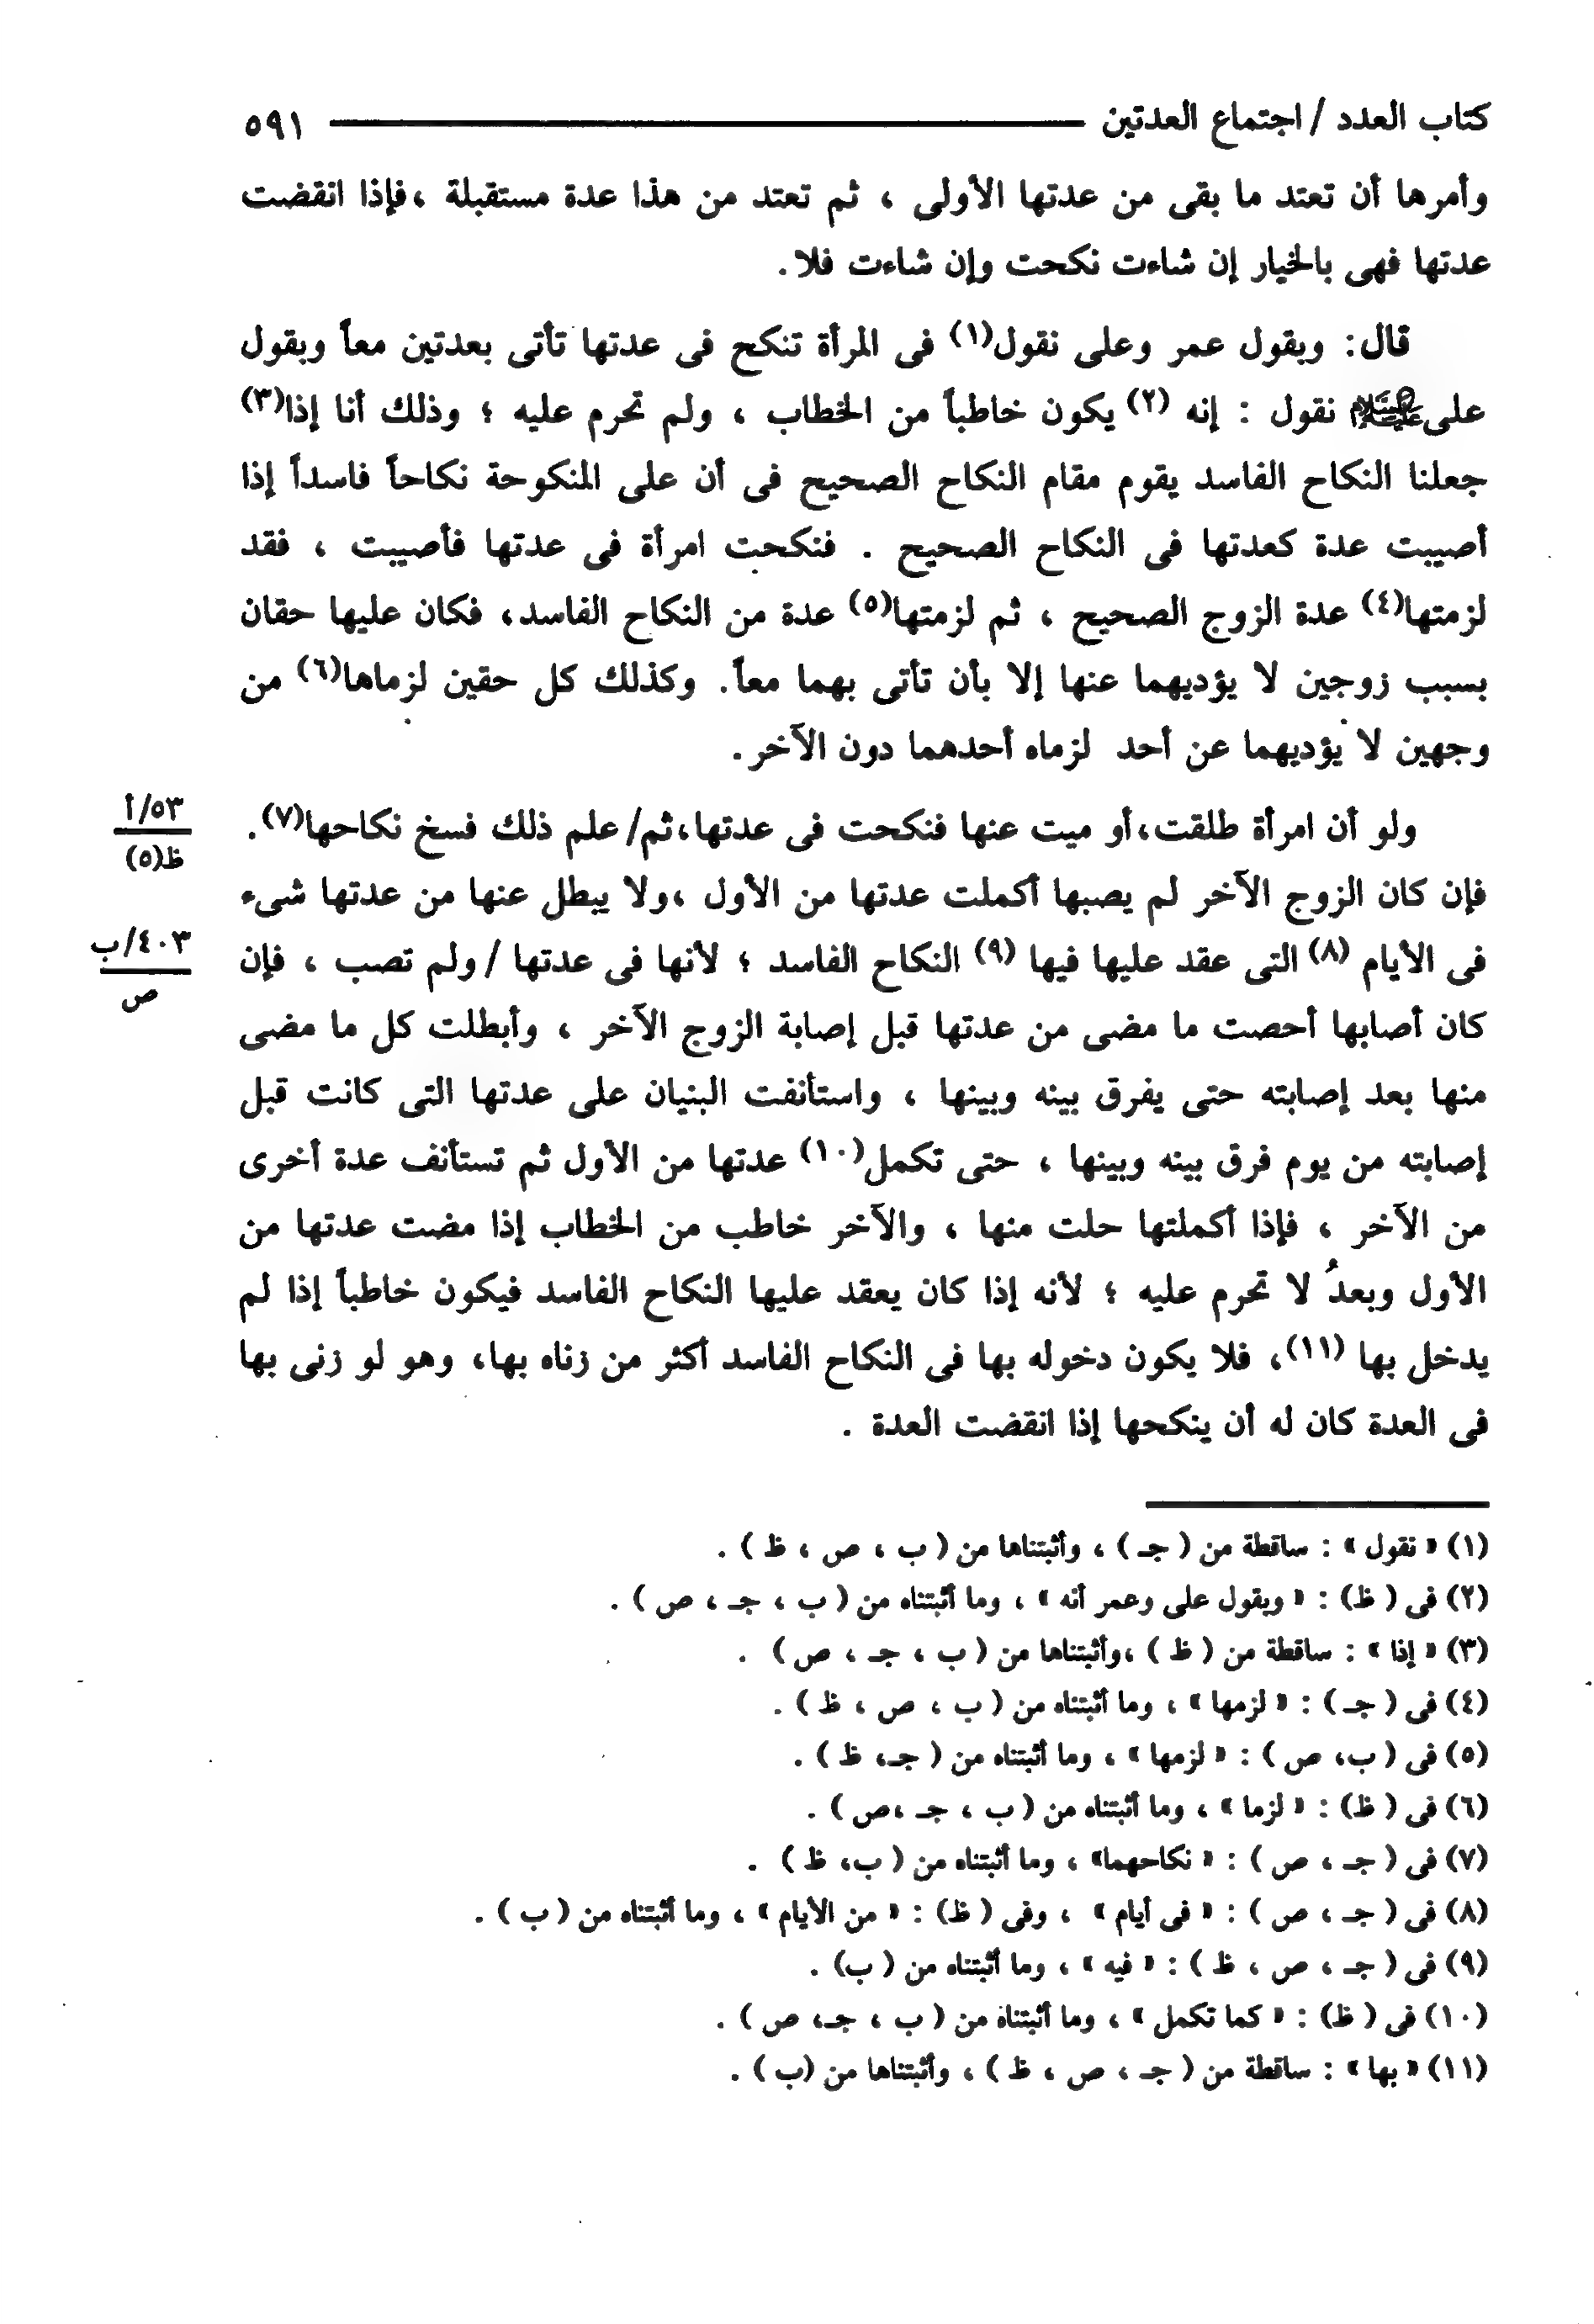 كتاب العدد / اجتماع العدتين ٥٩١
وأمرها أن تعتد ما بقى من عدتها الأولى ، ثم تعتد من هذا عدة مستقبلة ،فإذا انقضت
عدتها فهى بالخيار إن شاءت نكحت وإن شاءت فلا .
قال: وبقول عمر وعلى نقول(١) فى المرأة تنكح فى عدتها تأتى بعدتين معاً وبقول
على عليه السلام نقول : إنه (٢) يكون خاطباً من الخطاب ، ولم تحرم عليه ؛ وذلك أنا إذا(٣)
جعلنا النكاح الفاسد يقوم مقام النكاح الصحيح فى أن على المنكوحة نكاحاً فاسداً إذا
أصيبت عدة كعدتها فى النكاح الصحيح . فنكحت امرأة فى عدتها فأصيبت ، فقد
لزمتها(٤) عدة الزوج الصحيح ، ثم لزمتها(٥) عدة من النكاح الفاسد، فكان عليها حقان
بسبب زوجين لا يؤديهما عنها إلا بأن تأتى بهما معاً. وكذلك كل حقين لزماها(٦) من
وجهين لا يؤديهما عن أحد لزماه أحدهما دون الآخر.
ولو أن امرأة طلقت،أو ميت عنها فنكحت فى عدتها،ثم/ علم ذلك فسخ نكاحها(٧).
٥٣/أ
ظ(٥)
فإن كان الزوج الآخر لم يصبها أكملت عدتها من الأول ،ولا يبطل عنها من عدتها شىء
فى الأيام (٨) التى عقد عليها فيها (٩) النكاح الفاسد ؛ لأنها فى عدتها / ولم تصب ، فإن
٤٠٣/ب
ص
كان أصابها أحصت ما مضى من عدتها قبل إصابة الزوج الآخر ، وأبطلت كل ما مضى
منها بعد إصابته حتى يفرق بينه وبينها ، واستأنفت البنيان على عدتها التى كانت قبل
إصابته من يوم فرق بينه وبينها ، حتى تكمل(١٠) عدتها من الأول ثم تستأنف عدة أخرى
من الآخر ، فإذا أكملتها حلت منها ، والآخر خاطب من الخطاب إذا مضت عدتها من
الأول وبعدُ لا تحرم عليه ؛ لأنه إذا كان يعقد عليها النكاح الفاسد فيكون خاطباً إذا لم
يدخل بها (١١)، فلا يكون دخوله بها فى النكاح الفاسد أكثر من زناه بها، وهو لو زنى بها
فى العدة كان له أن ينكحها إذا انقضت العدة .
(١) « نقول » : ساقطة من ( جـ ) ، وأثبتناها من ( ب ، ص ، ظ ) .
(٢) فى ( ظ) : « وبقول على وعمر أنه » ، وما أثبتناه من ( ب ، جـ ، ص ) .
(٣) « إذا » : ساقطة من ( ظ ) ،وأثبتناها من ( ب ، جـ ، ص ) .
(٤) فى ( جـ ) : « لزمها » ، وما أثبتناه من ( ب ، ص ، ظ ) .
(٥) فى ( ب، ص ) : « لزمها » ، وما أثبتناه من ( جـ، ظ ) .
(٦) فى ( ظ) : « لزما » ، وما أثبتناه من ( ب ، جـ ،ص ) .
(٧) فى ( جـ ، ص ) : « نكاحهما» ، وما أثبتناه من ( ب، ظ ) .
(٨) فى ( جـ ، ص ) : « فى أيام » ، وفى ( ظ) : « من الأيام » ، وما أثبتناه من ( ب ) .
(٩) فى ( جـ ، ص ، ظ ) : « فيه » ، وما أثبتناه من ( ب) .
(١٠) فى ( ظ) : « كما تكمل » ، وما أثبتناه من ( ب ، جـ، ص ) .
(١١) « بها » : ساقطة من ( جـ ، ص ، ظ ) ، وأثبتناها من (ب ) .